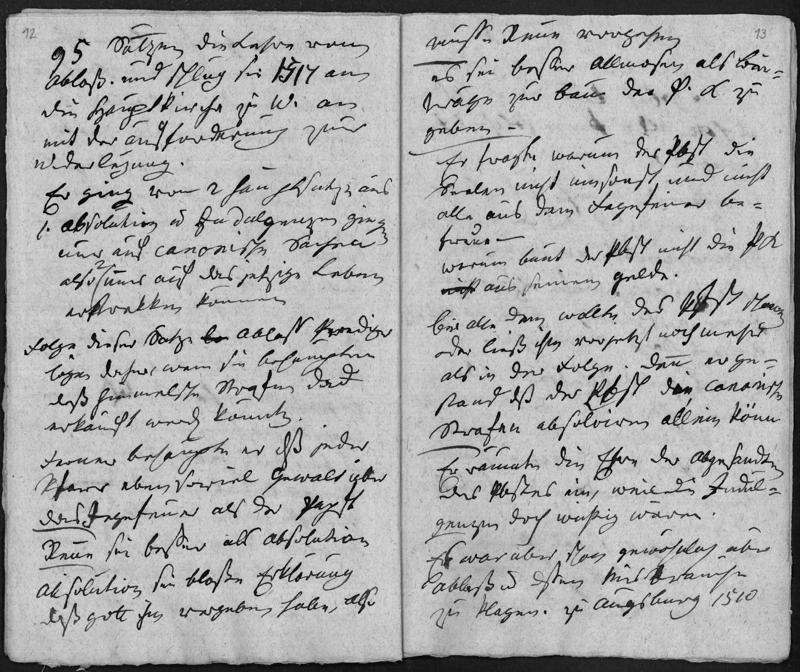 12
95 Sätzen die Lehre vom
Ablaß. und schlug sie 1517 an
die Hauptkirche zu W. an
mit der Aufforderung zur
Widerlegung.
Er ging vom 2 Hauptsatze aus
1. absolution u Indulgenzen ging
nur auf canonische Strafen
also nur auf das jetzige Leben
erstrekken können
Folge dieser Satze Ablass Prediger
lögen daher, wenn sie behaupten
daß himmelsche Strafen dad
erkauft werd könnte.
Ferner behaupte er dß jeder
Pfarrer ebensoviel Gewalt über
das Fegefeuer als der Papst
Reue sei besser als absolution
Absolution sei bloße Erklärung
daß gott ihm vergeben habe, also
13
müsse Reue vorgehen
es sei besser Allmosen als Bei=
träge zur bau der P. K zu
geben –
Er fragte warum der Pbst die
Seelen nicht umsonst, und nicht
alle aus dem Fegefeuer be=
freue –
warum baut der Pbst nicht die PK
aus seinem gelde.
bei alle dem wollte des Pbst
oder ließ ihn vorjetzt noch mehr
als in der Folge. Denn er ge=
stand dß der Pbst die canonische
Strafen absolviren allein könn
Er räumte die Ehre der Abgesandten
des Pbstes ein, weil die Indul=
genzen doch wichtig wären.
Es war aber schon gewöhnlich über
Ablaß u dessen Misbräuche
zu klagen. zu Augsburg 1510